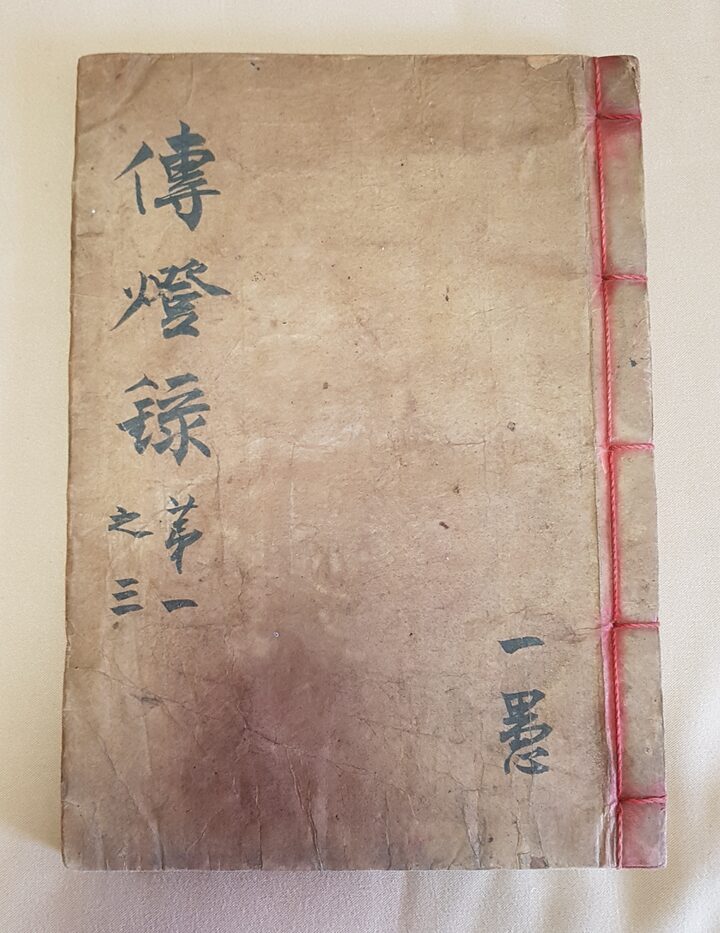 傳燈錄
苐一
之三
一愚